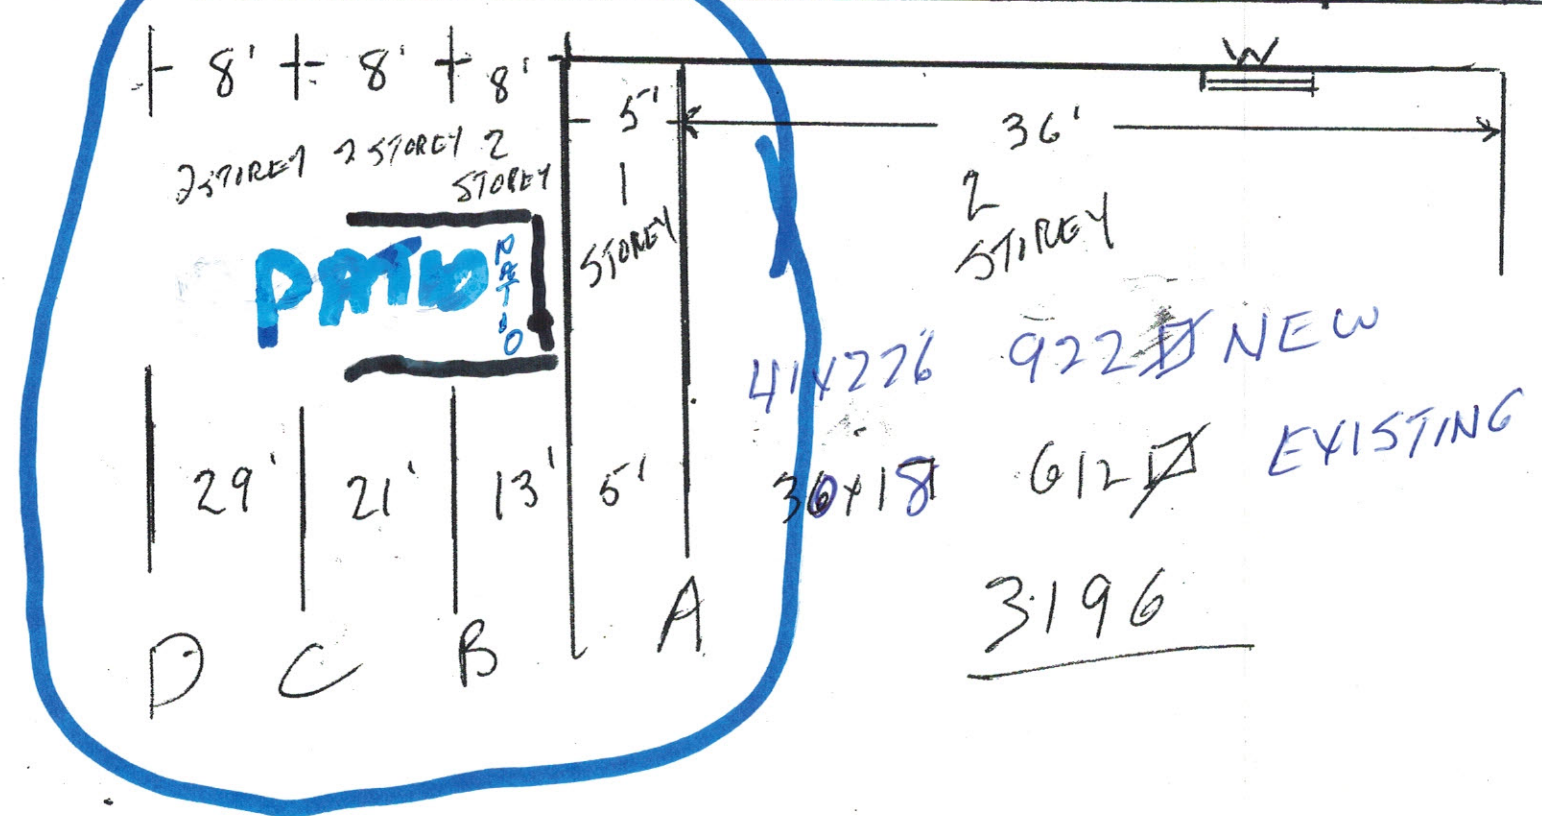 8' 8' 8' W
5' 36'
2 STOREY 2 STOREY 2 STOREY
1 STOREY
2 STOREY
PATIO PATIO
41x226 922 NEW
36x18 612 EXISTING
29' 21' 13' 5'
3196
D C B A